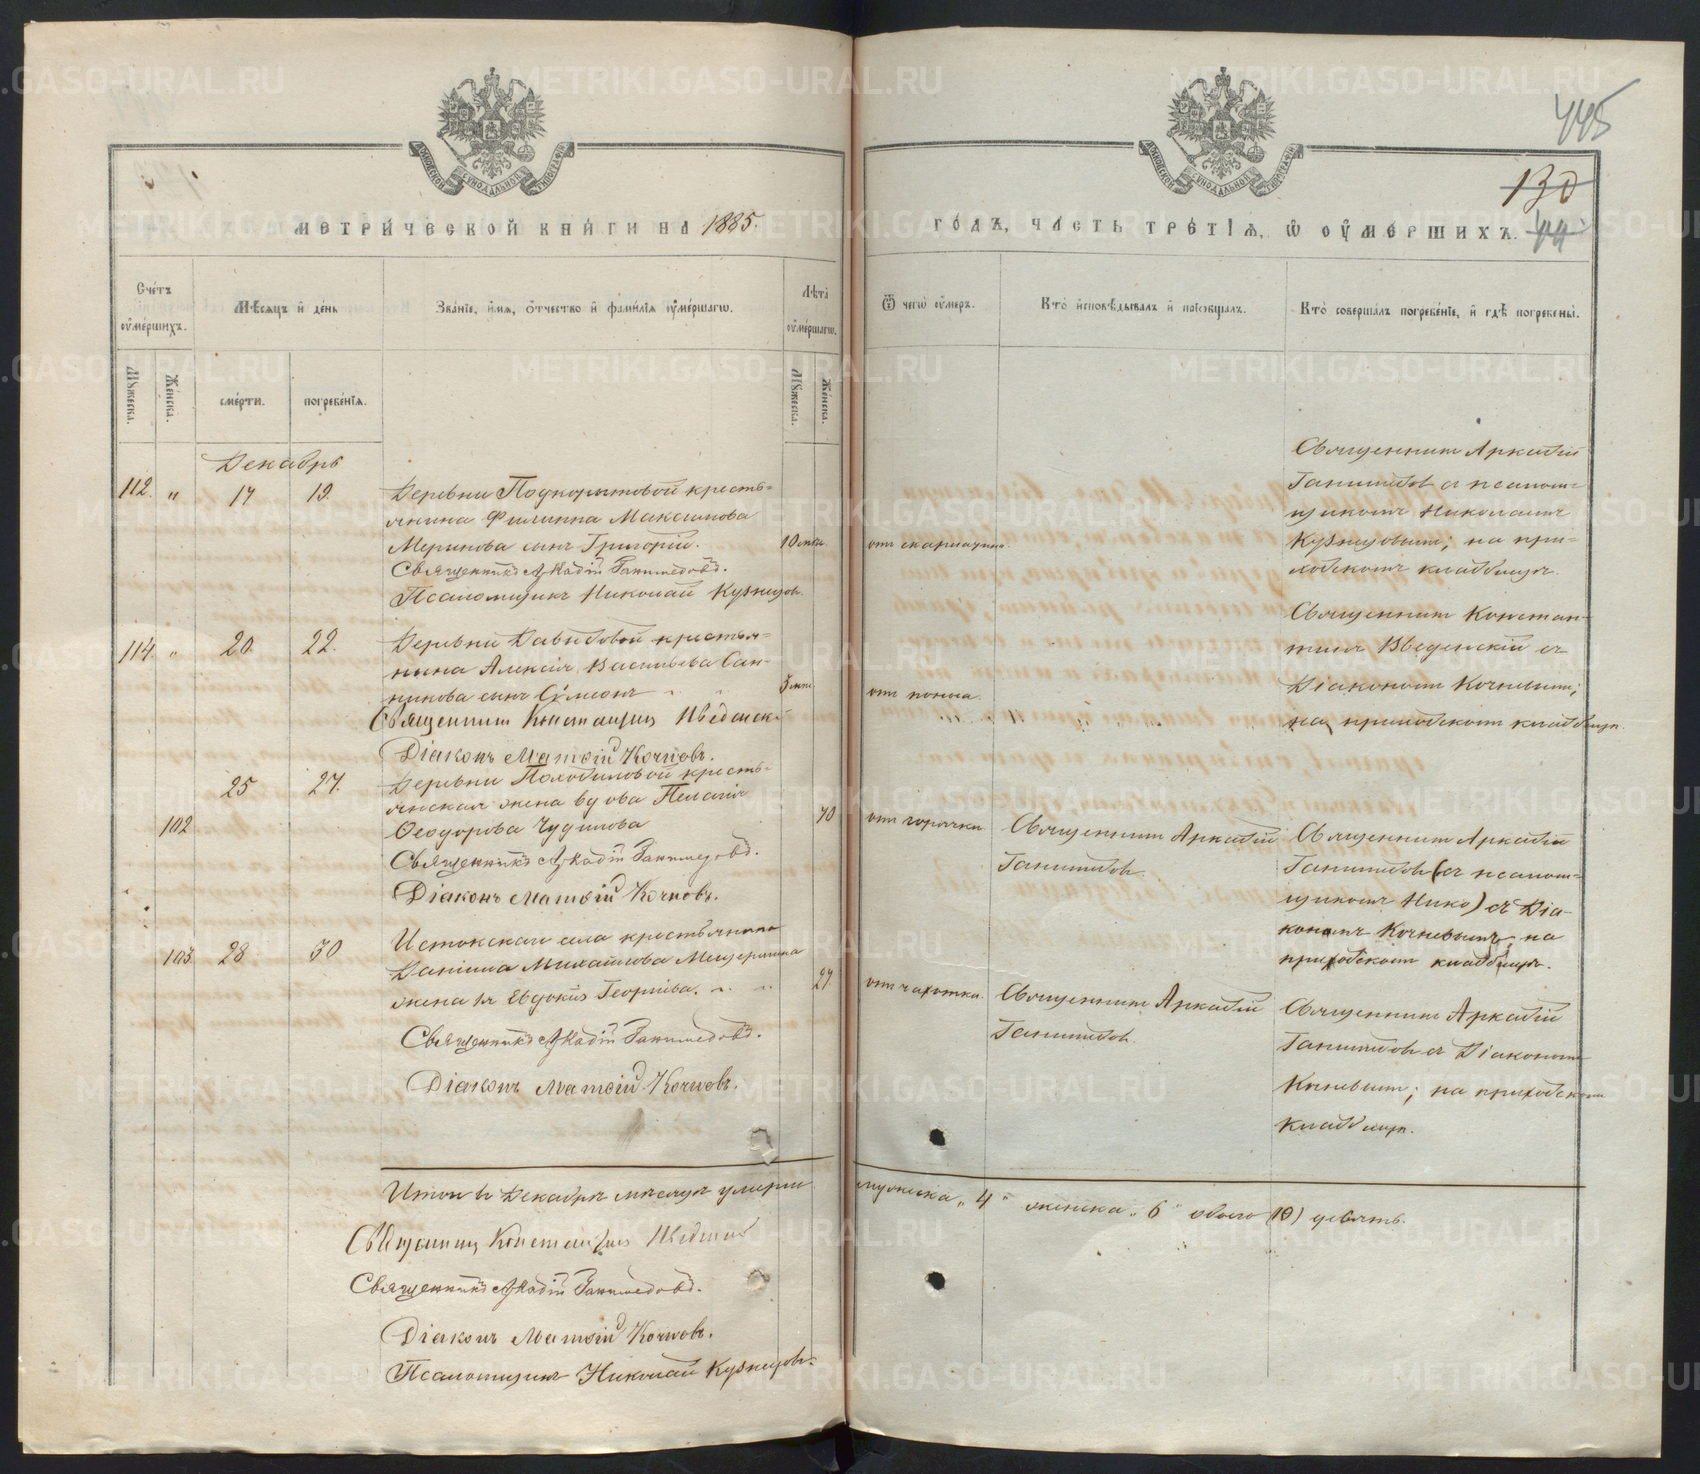 METRIKI.GASO-URAL.RU
445
130
44
МЕТРИЧЕСКОЙ КНИГИ НА 1885.
ГОДЪ, ЧАСТЬ ТРЕТІЯ, Ѡ ОУМЕРШИХЪ.
Счетъ оумершихъ.
Мѣсяцъ и день
Званіе, имя, отчество и фамилія оумершагѡ.
Лѣта оумершагѡ.
Ѿ чегѡ оумеръ.
Кто исповѣдывалъ и пріобщалъ.
Кто совершалъ погребеніе, и гдѣ погребены.
Мужеска.
Женска.
смерти.
погребенія.
Мужеска.
Женска.
Декабрь
112. " 17 19.
Деревни Подкорытовой кресть-
янина Филиппа Максимова
Мерзнова сынъ Григорій.
Священникъ Аркадій Ганимедовъ.
Псаломщикъ Николай Кузнецовъ.
от скарлатины.
Священник Аркадій
Ганимедов съ псалом-
щикомъ Николаемъ
Кузнецовым; на при-
ходскомъ кладбищѣ.
114. " 20. 22.
Деревни Давыдовой крестья-
нина Алексія Васильева Сан-
никова сынъ Сѵмеонъ
Священник Константин Введенскій
Діаконъ Матѳій Кочневъ.
от поноса.
Священник Констан-
тин Введенскій съ
Діаконом Кочневым;
на приходском кладбищѣ.
102 25 27.
Деревни Походиловой кресть-
янская жена вдова Пелагія
Ѳеодорова Чудинова
70
Священникъ Аркадій Ганимедовъ.
Діаконъ Матѳій Кочневъ.
от горячки
Священник Аркадій
Ганимедов.
Священник Аркадій
Ганимедов (съ псалом-
щикомъ Нико) съ Діа-
кономъ Кочневымъ, на
приходском кладбищѣ.
103 28 30
Истокскаго села крестьянина
Даніила Михайлова Мещерягина
жена его Евдокія Георгіева.
27.
Священникъ Аркадій Ганимедовъ.
Діаконъ Матѳій Кочневъ.
от чахотки.
Священник Аркадій
Ганимедов.
Священник Аркадій
Ганимедов съ Діаконом
Кочневым; на приходском
кладбищѣ.
Итого въ Декабрѣ мѣсяцѣ умерло мужеска „4" женска „6" обоего (10) девять.
Священник Константин Введенскій
Священникъ Аркадій Ганимедовъ.
Діаконъ Матѳій Кочневъ.
Псаломщикъ Николай Кузнецовъ.